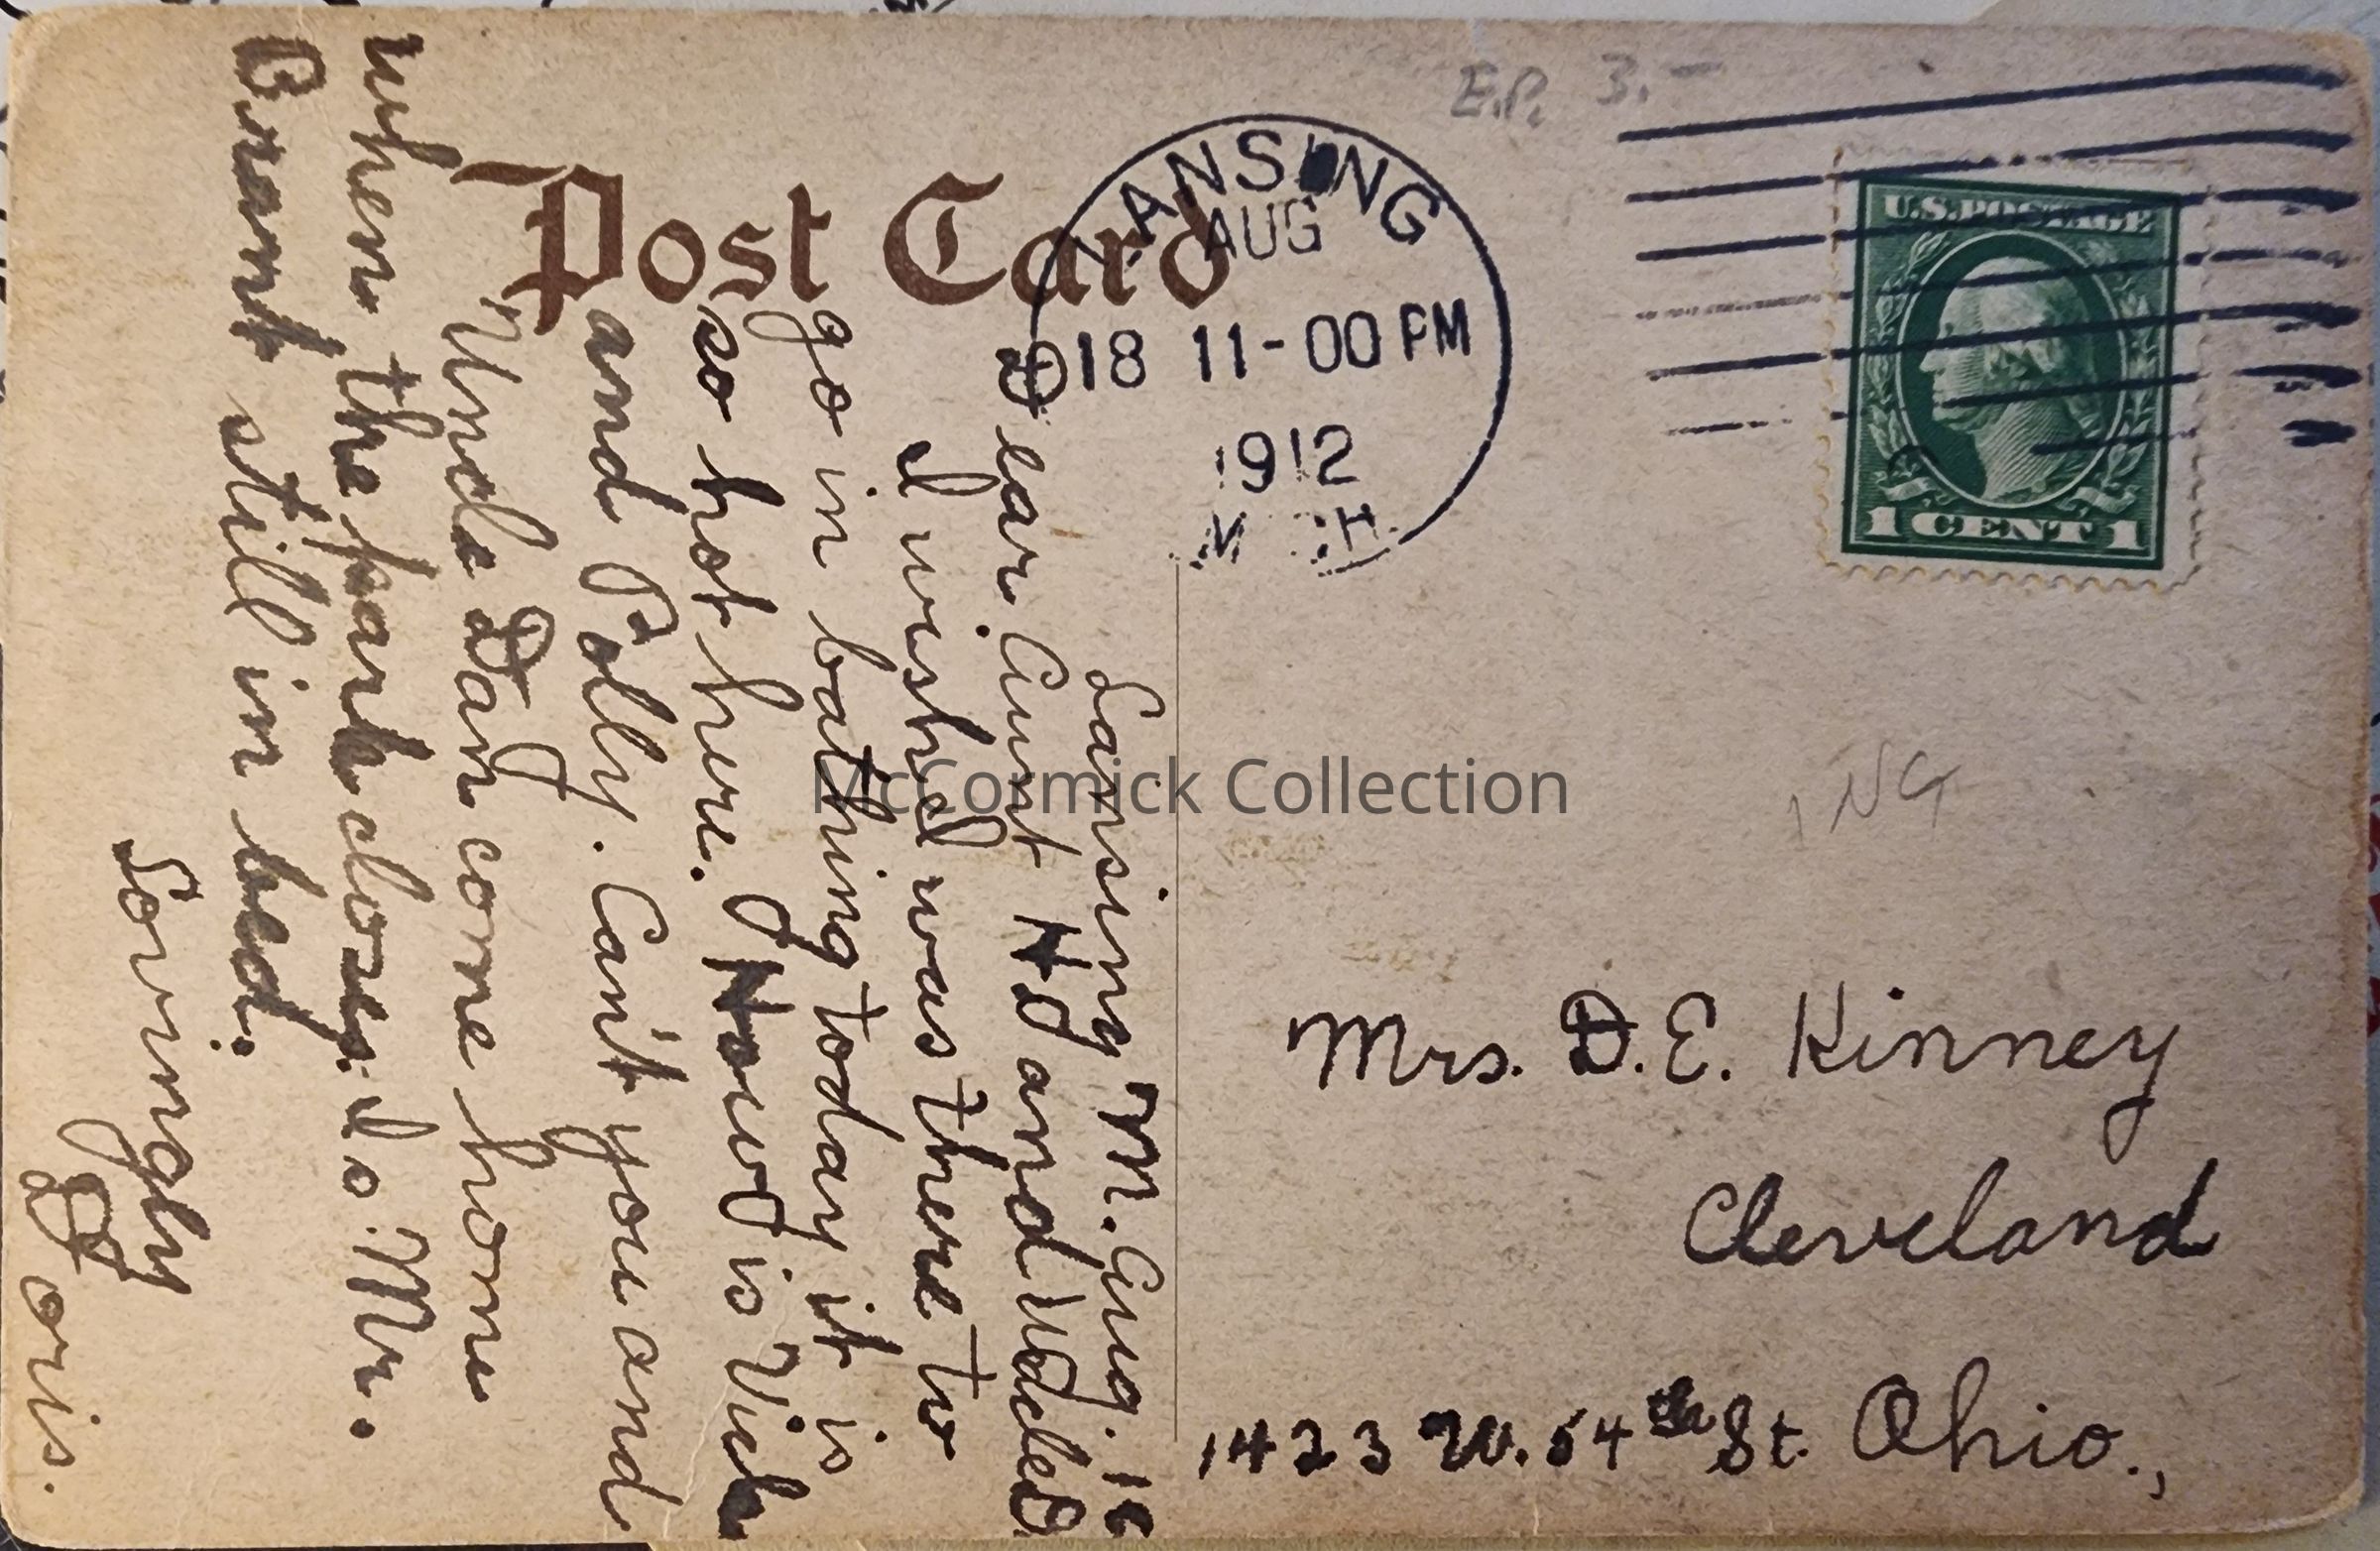 E.P. 3.-
Post Card
LANSING
AUG
18 11-00 PM
1912
MICH
U.S.POSTAGE
1 CENT 1
Lansing M. Aug. 18
Dear Aunt N and Uncle D
I wish I was there to
go in bathing today it is
so hot here. How is Vick
and Polly. Can't you and
Uncle Dan come home
when the park closes. Is Mr.
Brant still in bed.
Lovingly
Doris.
McCormick Collection
Mrs. D.E. Kinney
Cleveland
1423 W. 54th St. Ohio.,